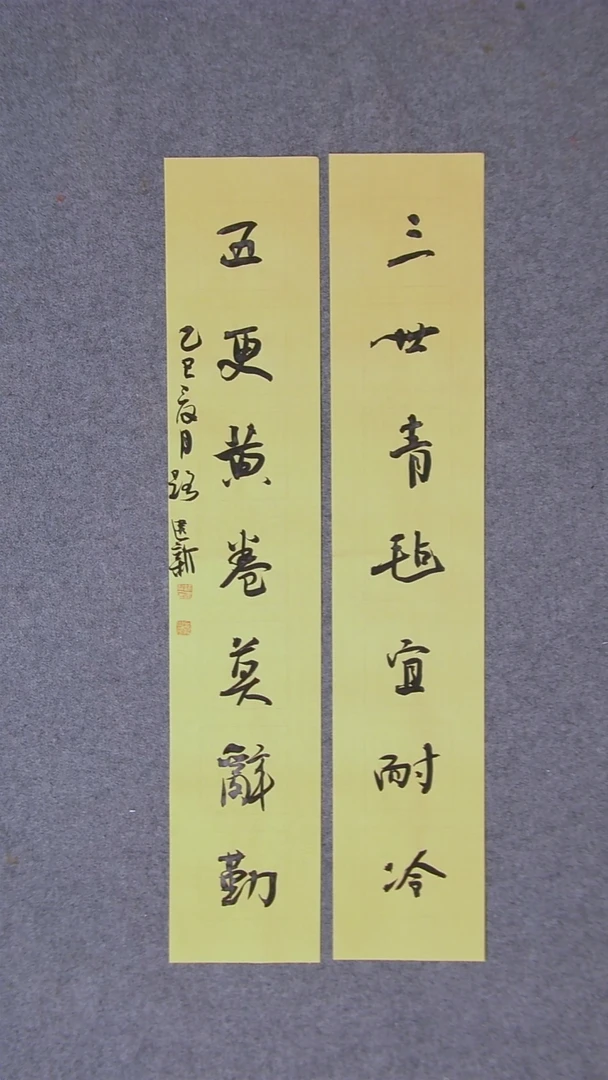 三世青毡宜耐冷
五更黄卷莫辭勤
乙巳辰月路建新